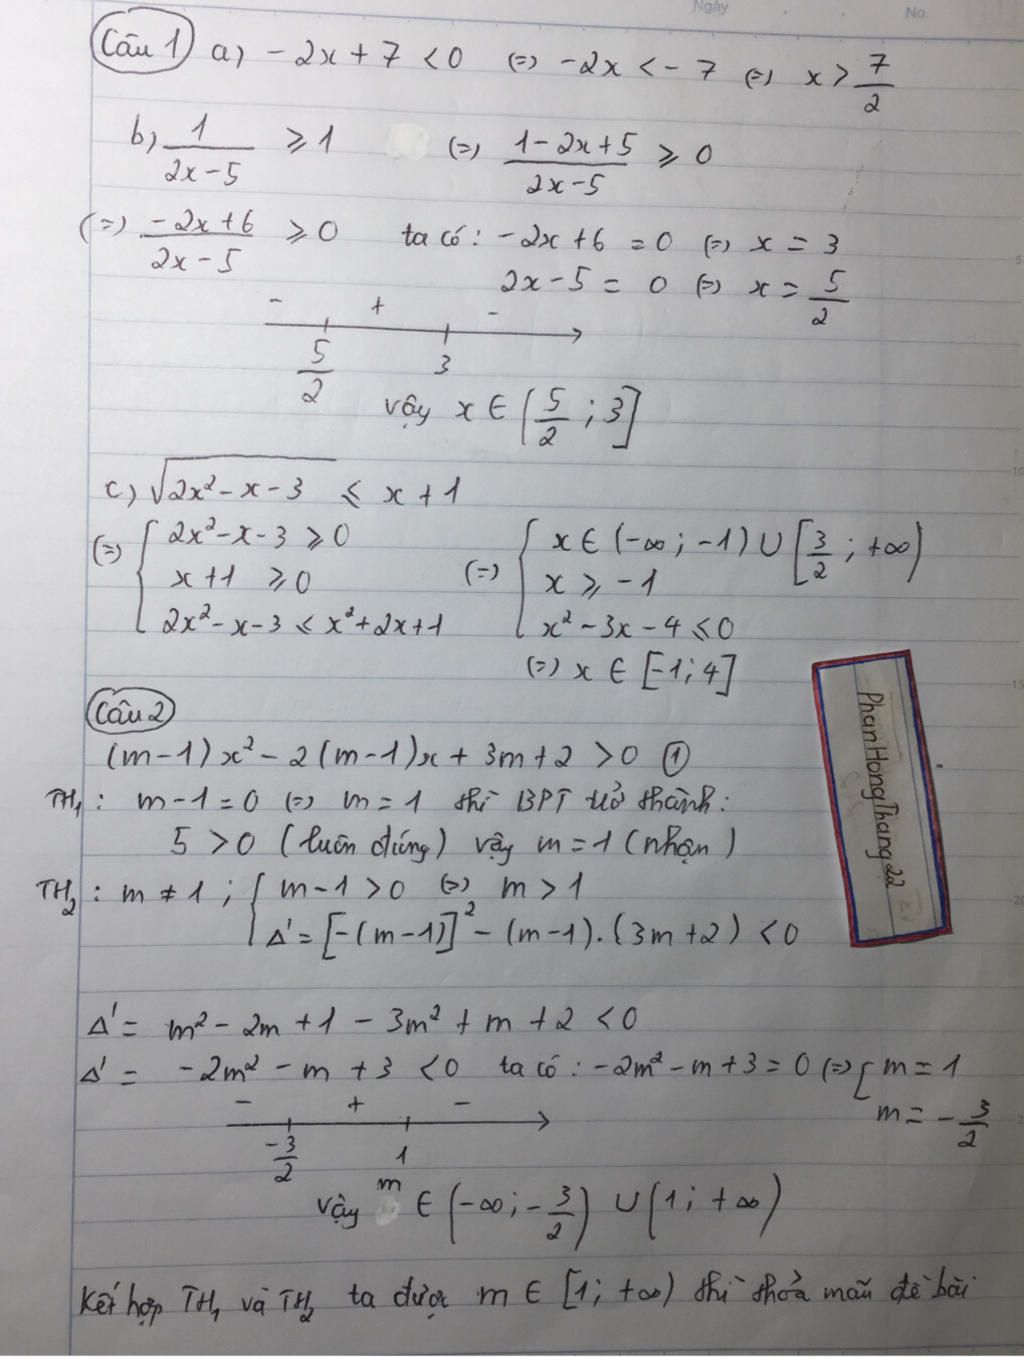 Ngày No.
Câu 1 a) -2x + 7 < 0 (=) -2x < -7 (=) x > 7/2
b) 1/(2x-5) ≥ 1 (=) (1-2x+5)/(2x-5) ≥ 0
(=) (-2x+6)/(2x-5) ≥ 0 ta có: -2x+6 = 0 (=) x = 3
2x-5 = 0 (=) x = 5/2
- + -
5/2 3
vậy x ∈ (5/2 ; 3]
c) √(2x²-x-3) ≤ x+1
(=) { 2x²-x-3 ≥ 0 (=) { x ∈ (-∞; -1) ∪ [3/2 ; +∞)
x+1 ≥ 0 x ≥ -1
2x²-x-3 ≤ x²+2x+1 x²-3x-4 ≤ 0
(=) x ∈ [-1; 4]
Câu 2
(m-1)x² - 2(m-1)x + 3m+2 > 0 ①
TH₁: m-1=0 (=) m=1 thì BPT trở thành:
5 > 0 (luôn đúng) vậy m=1 (nhận)
TH₂: m ≠ 1 ; { m-1 > 0 (=) m > 1
Δ' = [-(m-1)]² - (m-1).(3m+2) < 0
Δ' = m² - 2m + 1 - 3m² + m + 2 < 0
Δ' = -2m² - m + 3 < 0 ta có: -2m² - m + 3 = 0 (=) [ m = 1
m = -3/2
- + -
-3/2 1
vậy m ∈ (-∞; -3/2) ∪ (1; +∞)
Kết hợp TH₁ và TH₂ ta được m ∈ [1; +∞) thì thỏa mãn đề bài
PhanHongThang22